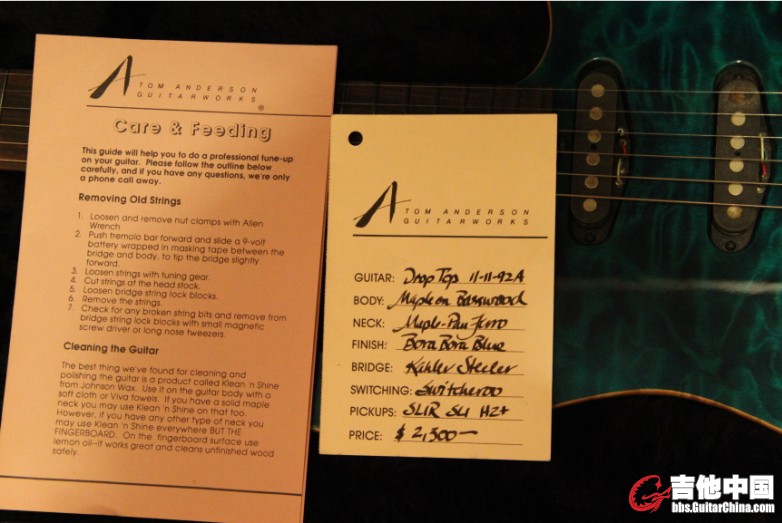 A
TOM ANDERSON
GUITARWORKS ®
Care & Feeding
This guide will help you to do a professional tune-up
on your guitar. Please follow the outline below
carefully, and if you have any questions, we're only
a phone call away.
Removing Old Strings
1. Loosen and remove nut clamps with Allen
Wrench
2. Push tremolo bar forward and slide a 9-volt
battery wrapped in masking tape between the
bridge and body, to tip the bridge slightly
forward.
3. Loosen strings with tuning gear.
4. Cut strings at the head stock.
5. Loosen bridge string lock blocks.
6. Remove the strings.
7. Check for any broken string bits and remove from
bridge string lock blocks with small magnetic
screw driver or long nose tweezers.
Cleaning the Guitar
The best thing we've found for cleaning and
polishing the guitar is a product called Klean 'n Shine
from Johnson Wax. Use it on the guitar body with a
soft cloth or Viva towels. If you have a solid maple
neck you may use Klean 'n Shine on that too.
However, if you have any other type of neck you
may use Klean 'n Shine everywhere BUT THE
FINGERBOARD. On the fingerboard surface use
lemon oil--it works great and cleans unfinished wood
safely.
A
TOM ANDERSON
GUITARWORKS
GUITAR: Drop Top 11-11-92A
BODY: Maple on Basswood
NECK: Maple-Pau Ferro
FINISH: Bora Bora Blue
BRIDGE: Kahler Steeler
SWITCHING: Switcheroo
PICKUPS: SL1R SL1 H2+
PRICE: $ 2,300—
吉他中国
bbs.GuitarChina.com